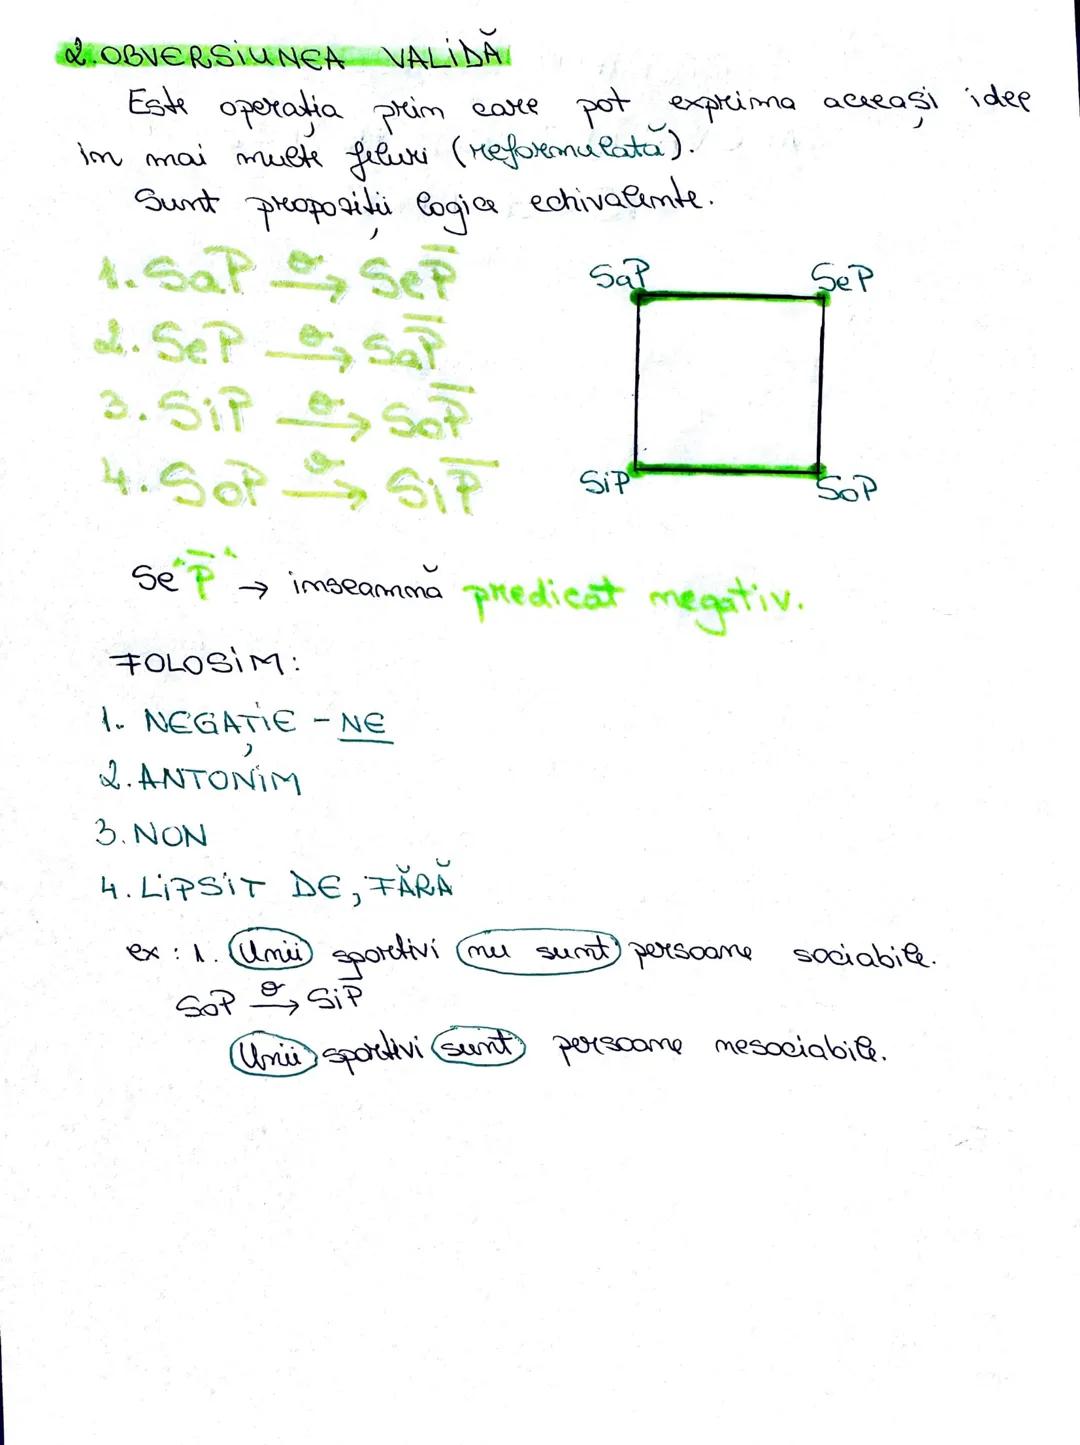 2. OBVERSIUNEA VALIDĂ
Este operația prin care pot exprima aceeași idee
în mai multe feluri (reformulată).
Sunt propoziții logice echivalente.
1. SaP o→ SeP̅
2. SeP o→ SaP̅
3. SiP o→ SoP̅
4. SoP o→ SiP̅
SaP SeP
SiP SoP
Se "P̅" → înseamnă predicat negativ.
FOLOSIM:
1. NEGAȚIE - NE
2. ANTONIM
3. NON
4. LIPSIT DE, FĂRĂ
ex: 1. Unii sportivi nu sunt persoane sociabile.
SoP o→ SiP̅
Unii sportivi sunt persoane nesociabile.